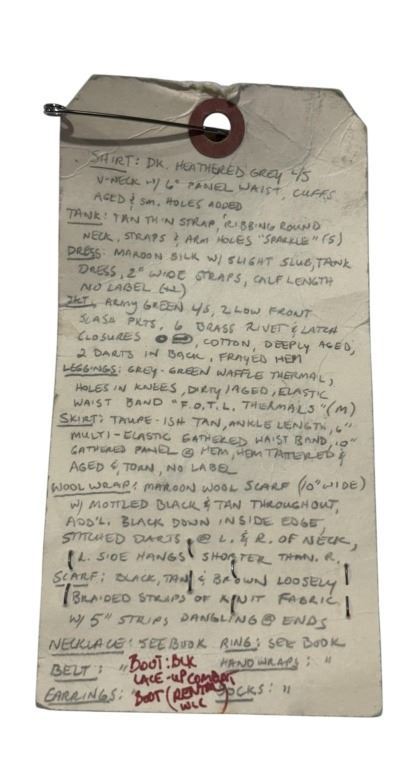 SHIRT: DK. HEATHERED GREY L/S
V-NECK W/ 6" PANEL WAIST, CUFFS
AGED & SM. HOLES ADDED
TANK: TAN THIN STRAP, RIBBING ROUND
NECK, STRAPS & ARM HOLES "SPARKLE" (S)
DRESS: MAROON SILK W/ SLIGHT SLUB, TANK
DRESS, 2" WIDE STRAPS, CALF LENGTH
NO LABEL
JKT, ARMY GREEN L/S, 2 LOW FRONT
SLASH PKTS, 6 BRASS RIVET & LATCH
CLOSURES, COTTON, DEEPLY AGED,
2 DARTS IN BACK, FRAYED HEM
LEGGINGS: GREY-GREEN WAFFLE THERMAL,
HOLES IN KNEES, DIRTY/AGED, ELASTIC
WAIST BAND "F.O.T.L. THERMALS" (M)
SKIRT: TAUPE-ISH TAN, ANKLE LENGTH, 6"
MULTI-ELASTIC GATHERED WAIST BAND, 10"
GATHERED PANEL @ HEM, HEM TATTERED &
AGED & TORN, NO LABEL
WOOL WRAP: MAROON WOOL SCARF (10" WIDE)
W/ MOTTLED BLACK & TAN THROUGHOUT,
ADD'L. BLACK DOWN INSIDE EDGE,
STITCHED DARTS @ L. & R. OF NECK,
L. SIDE HANGS SHORTER THAN R.
SCARF: BLACK, TAN & BROWN LOOSELY
BRAIDED STRIPS OF KNIT FABRIC
W/ 5" STRIPS DANGLING @ ENDS
NECKLACE: SEE BOOK RING: SEE BOOK
BELT: " HANDWRAPS: "
EARRINGS: " SOCKS: "
BOOT: BLK
LACE-UP COMBAT
BOOT (RENTAL
WCC